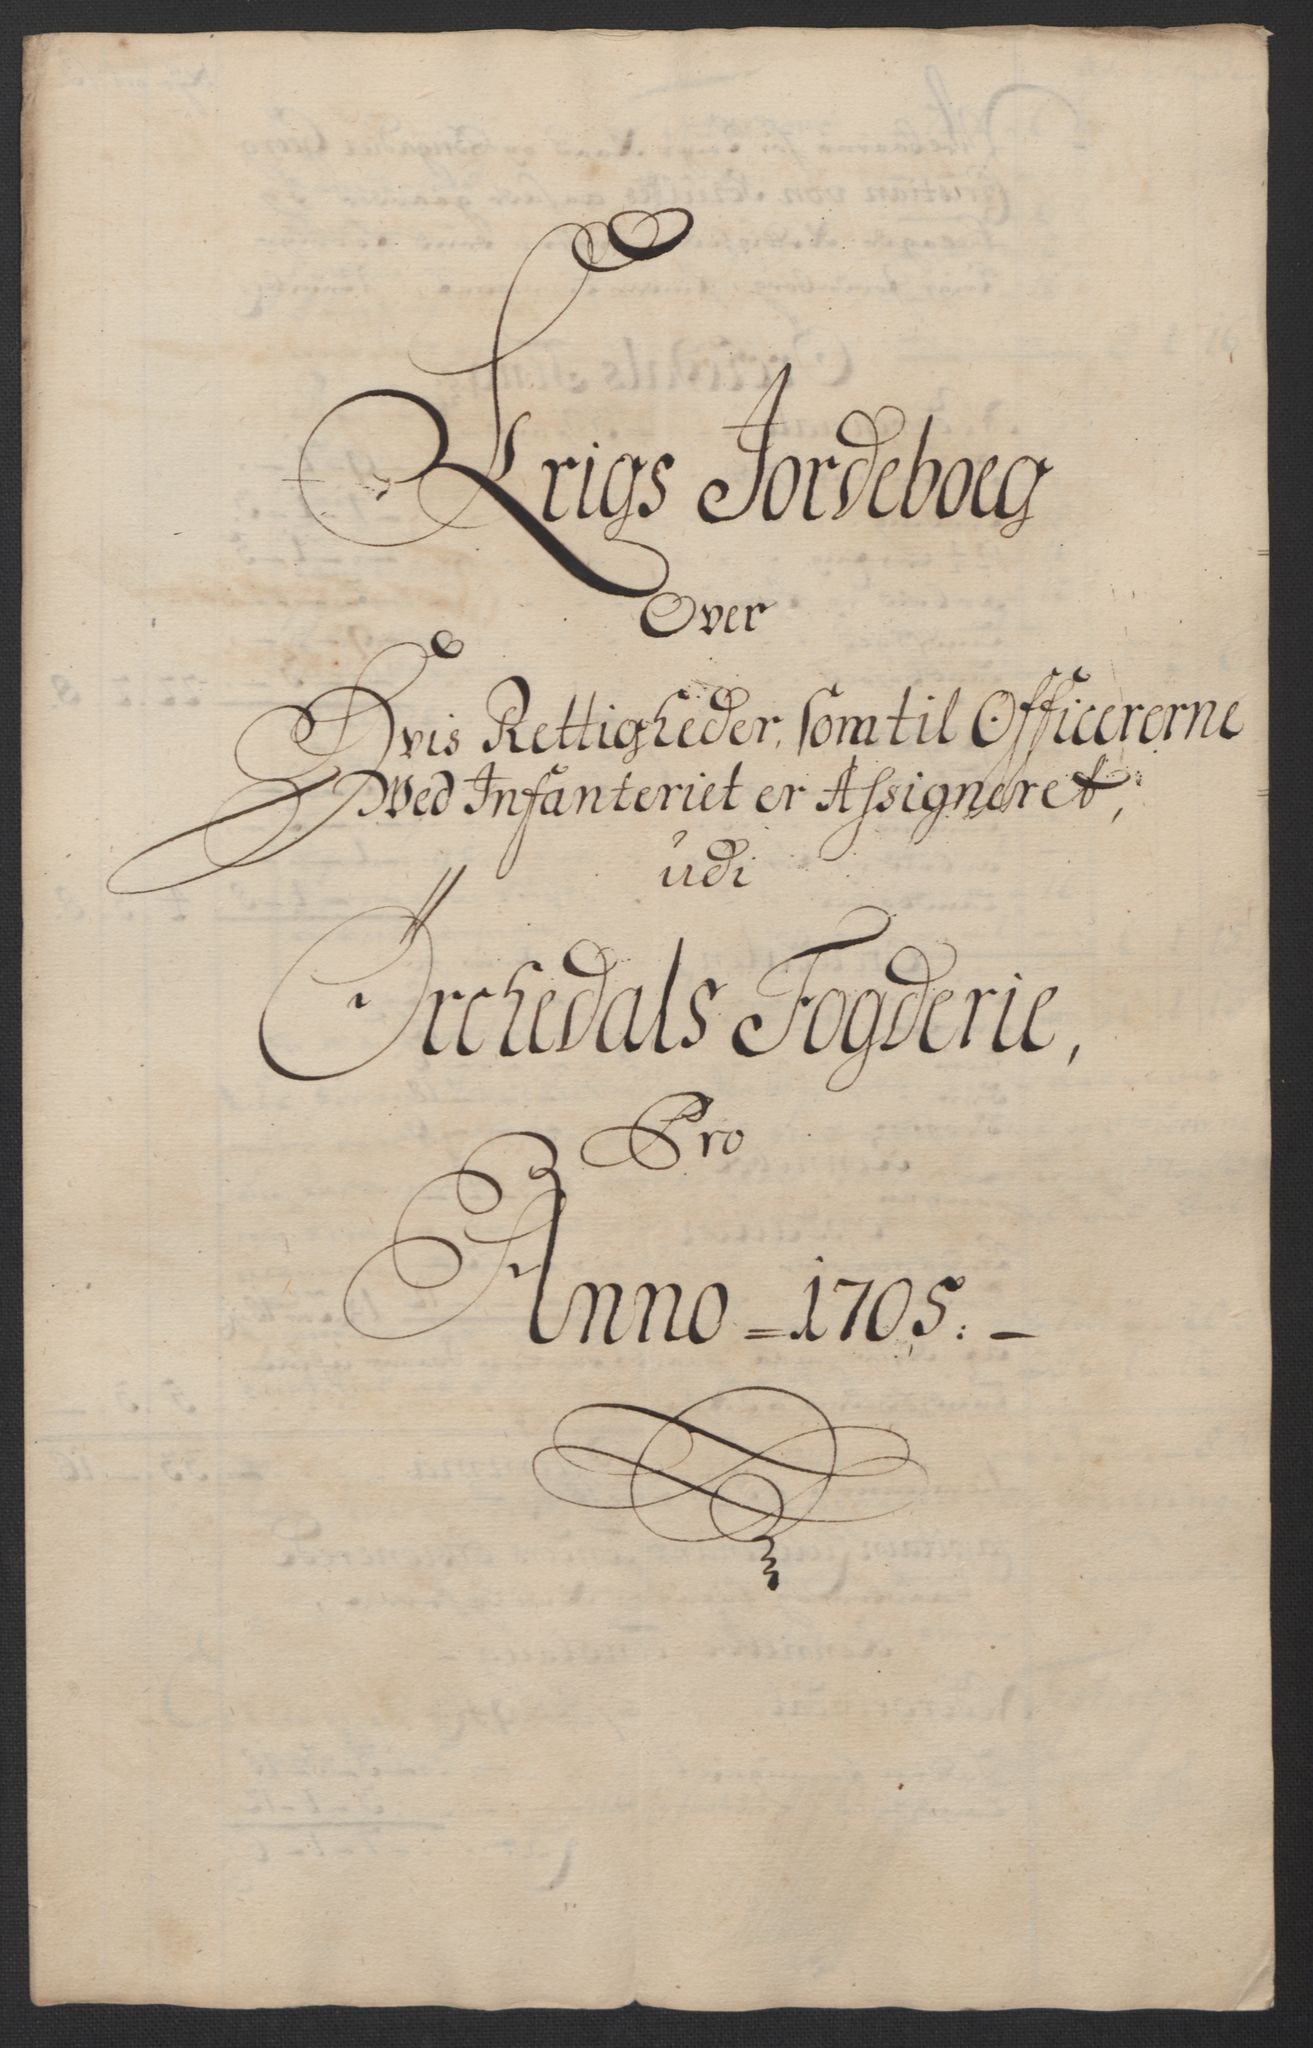 Krigs Jordeboeg
Over
Hvis Rettigheder, som til Officererne
Ved Infanteriet er Assigneret,
udi
Örchedals Fogderie,
Pro
Anno = 1705. —